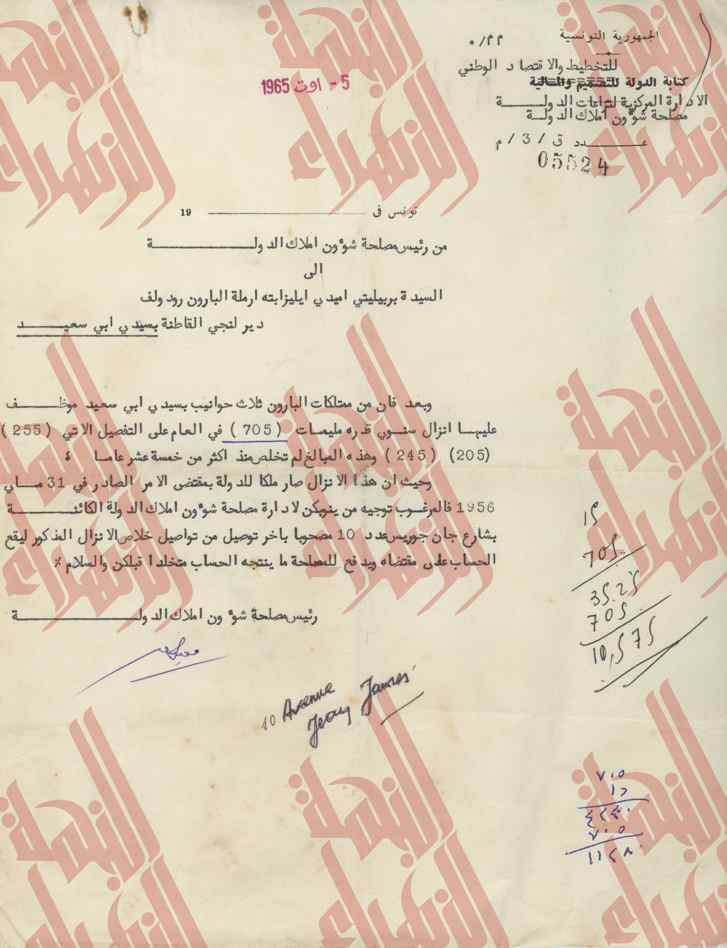 الجمهورية التونسية
م م/٠
للتخطيط والاقتصاد الوطني
كتابة الدولة للتصميم والمالية
الادارة المركزية لنزاعات الدولـــــة
مصلحة شؤون املاك الدولـــة
عـــــدد ق / 3 / م
05524
5 - اوت 1965
تونس في ــــــــــــ 19
من رئيس مصلحة شؤون املاك الدولـــــــة
الى
السيدة بربيليتي اميدي ايليزابته ارملة البارون رودولف
ديرلنجي القاطنة بسيدي ابي سعيـــــد
وبعد فان من ممتلكات البارون ثلاث حوانيب بسيدي ابي سعيد موظـــف
عليها انزال سنوي قدره مليمات (705) في العام على التفصيل الاتي (255)
(205) (245) وهذه المبالغ لم تخلص منذ اكثر من خمسة عشر عاما
وحيث ان هذا الانزال صار ملكا للدولة بمقتضى الامر الصادر في 31 مــاي
1956 فالمرغوب توجيه من ينوبكن لادارة مصلحة شؤون املاك الدولة الكائنـــــة
بشارع جان جوريس عدد 10 مصحوبا باخر توصيل من تواصيل خلاص الانزال المذكور ليقع
الحساب على مقتضاه ويدفع للمصلحة ما ينتجه الحساب متخلدا قبلكن والسلام ٪
رئيس مصلحة شؤون املاك الدولـــــــة
10 Avenue
Jean Jaures
15
705
35.25
705
10,575
٧٠٥
١٦
٤٢٣٠
٧٠٥
١١٢٨٠
النجمة الزهراء
النجمة الزهراء
النجمة الزهراء
النجمة الزهراء
النجمة الزهراء
النجمة الزهراء
النجمة الزهراء
النجمة الزهراء
النجمة الزهراء